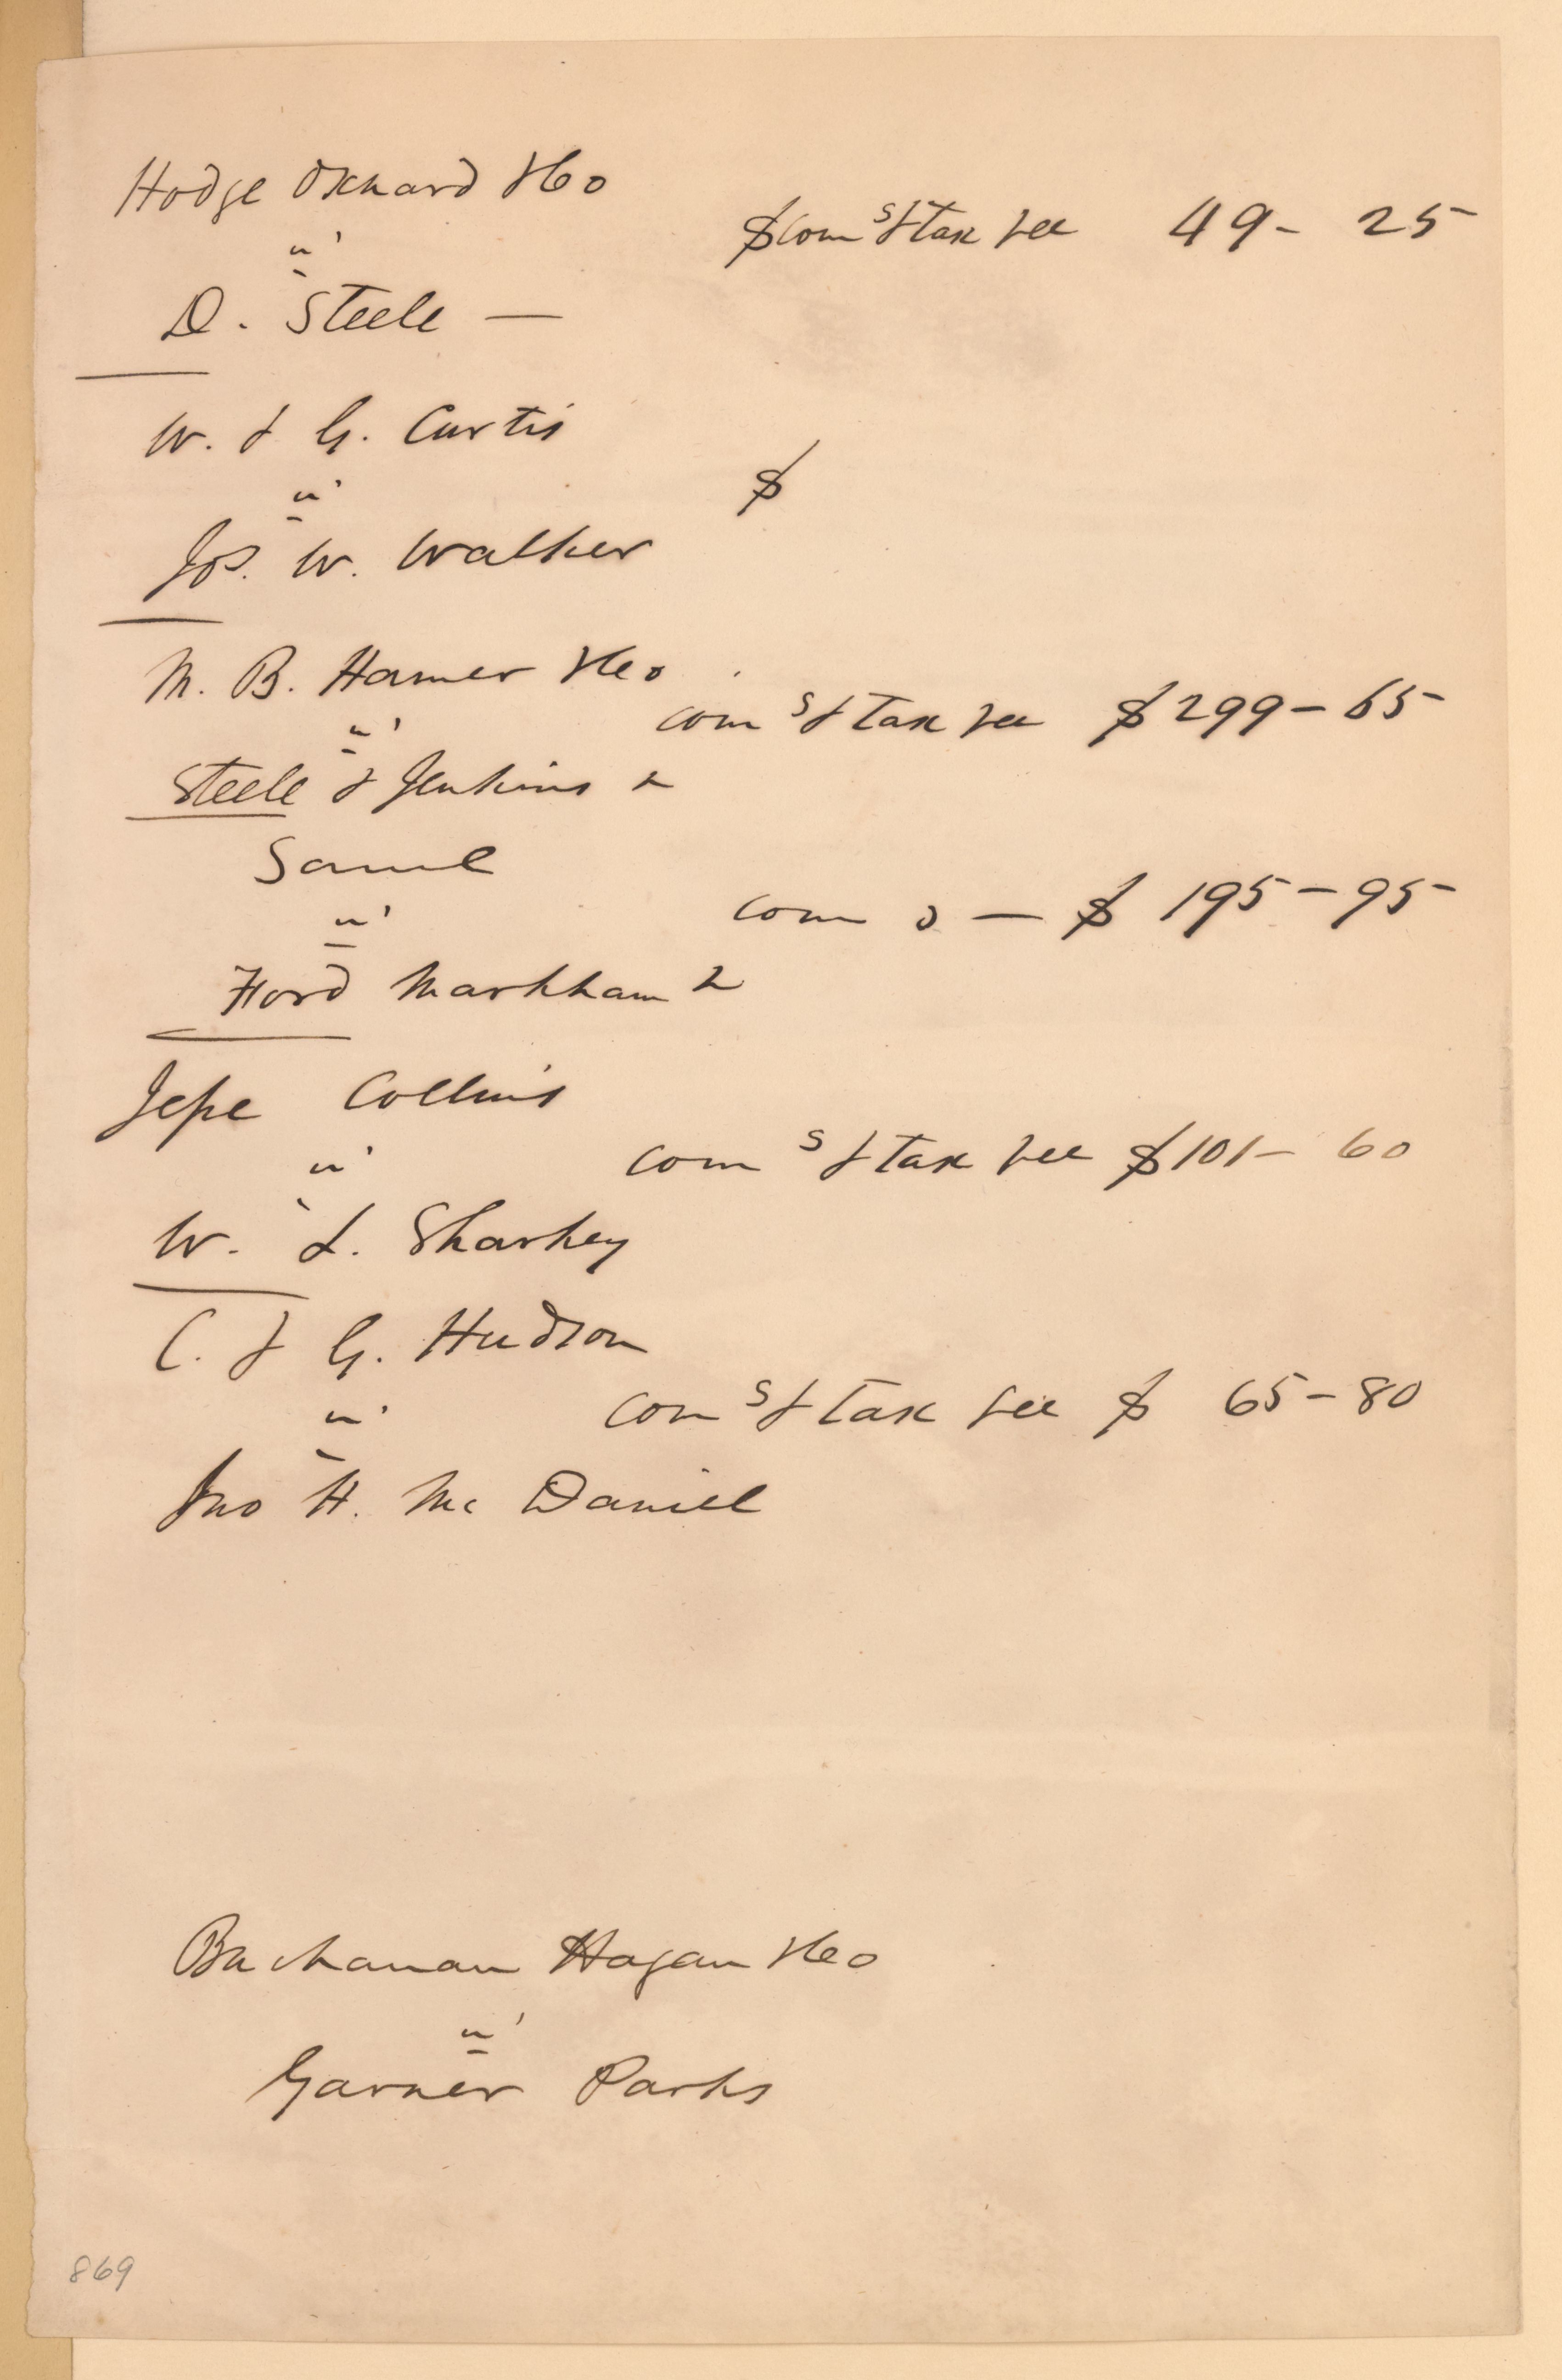 Hodge Oxnard & Co
$ com s & tax fee 49 - 25
vs
D. Steele —
W. & G. Curtis
vs $
Jos. W. Walker
M. B. Hamer & Co
com s & tax fee $ 299 - 65
vs
Steele & Jenkins
Same
vs com s — $ 195 - 95
Ford Markham
Jesse Collins
vs com s & tax fee $ 101 - 60
W. L. Sharkey
C. & G. Hudson
vs com s & tax fee $ 65 - 80
Jno H. Mc Daniel
Buchanan Hagan & Co
vs
Garner Parks
869